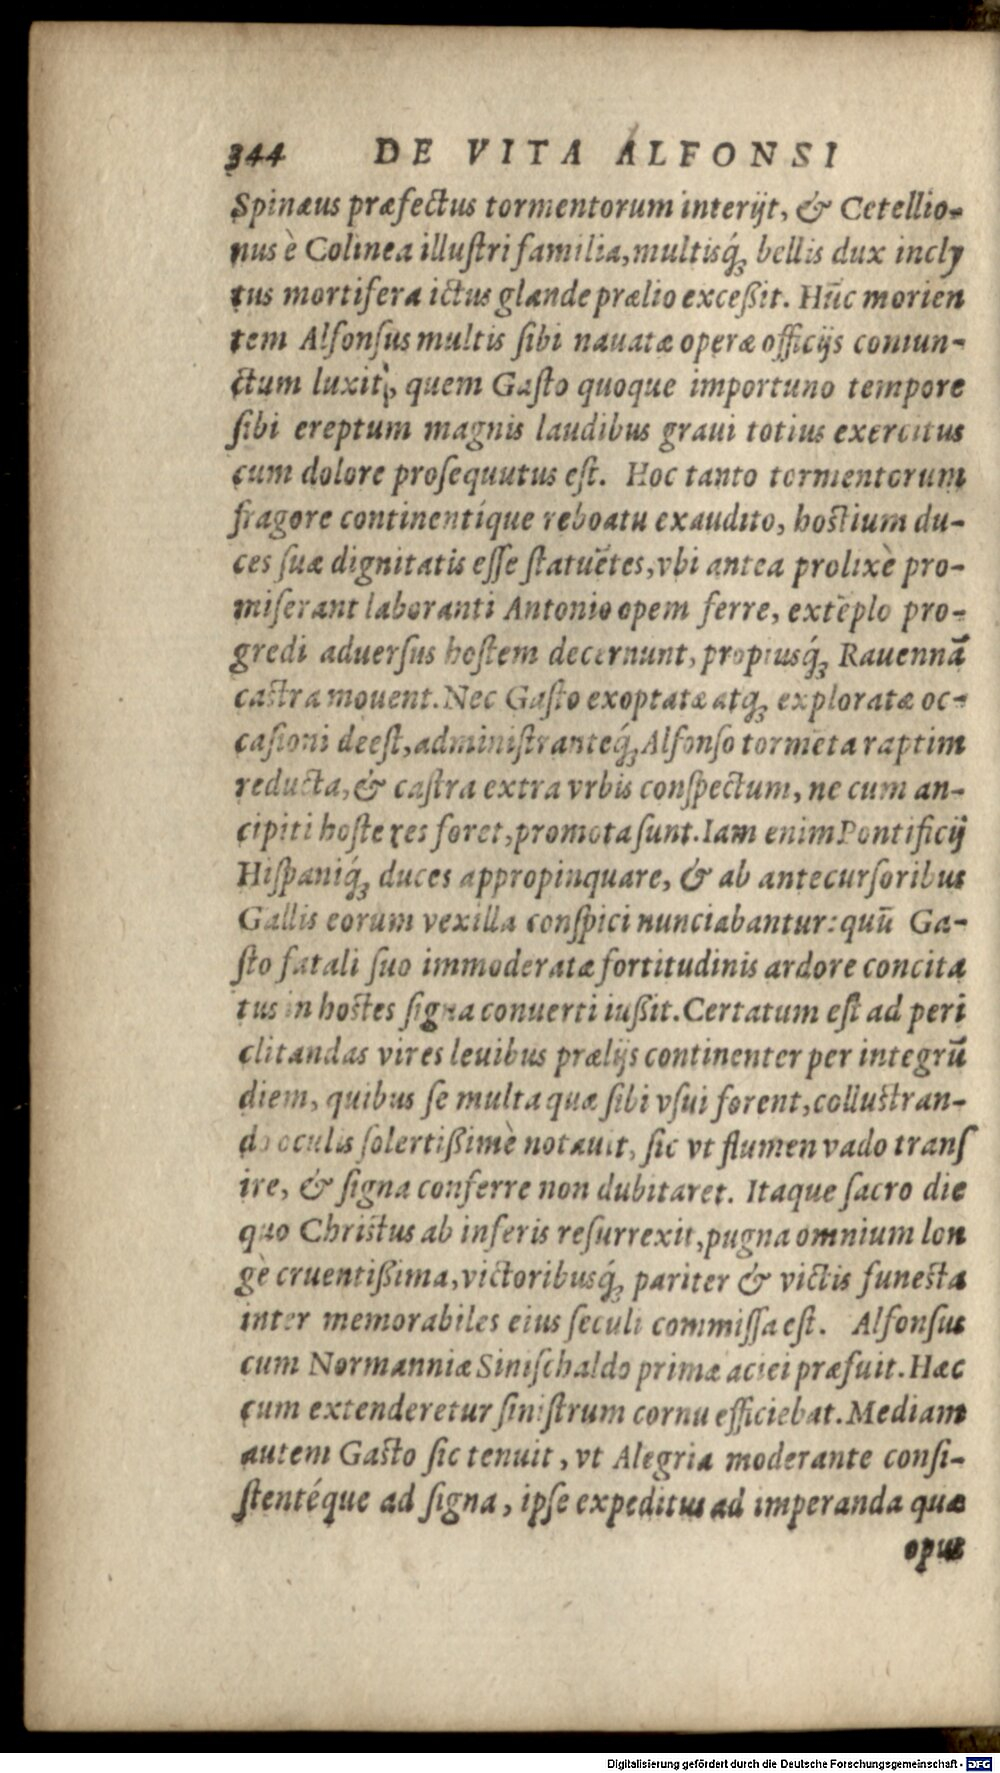 344 DE VITA ALFONSI
Spinæus præfectus tormentorum interijt, & Cetellio-
nus è Colinea illustri familia, multisq́; bellis dux incly
tus mortifera ictus glande prælio exceßit. Hũc morien
tem Alfonsus multis sibi nauatæ operæ officijs coniun-
ctum luxit, quem Gasto quoque importuno tempore
sibi ereptum magnis laudibus graui totius exercitus
cum dolore prosequutus est. Hoc tanto tormentorum
fragore continentíque reboatu exaudito, hostium du-
ces suæ dignitatis esse statuẽtes, vbi antea prolixè pro-
miserant laboranti Antonio opem ferre, extẽplo pro-
gredi aduersus hostem decernunt, propiusq́; Rauennã
castra mouent. Nec Gasto exoptatæ atq; exploratæ oc-
casioni deest, administranteq́; Alfonso tormẽta raptim
reducta, & castra extra vrbis conspectum, ne cum an-
cipiti hoste res foret, promota sunt. Iam enim Pontificij
Hispaniq́; duces appropinquare, & ab antecursoribus
Gallis eorum vexilla conspici nunciabantur: quũ Ga-
sto fatali suo immoderatæ fortitudinis ardore concita
tus in hostes signa conuerti iußit. Certatum est ad peri
clitandas vires leuibus prælijs continenter per integrũ
diem, quibus se multa quæ sibi vsui forent, collustran-
do oculis solertißimè notauit, sic vt flumen vado trans
ire, & signa conferre non dubitaret. Itaque sacro die
quo Christus ab inferis resurrexit, pugna omnium lon
gè cruentißima, victoribusq́; pariter & victis funesta
inter memorabiles eius seculi commissa est. Alfonsus
cum Normanniæ Sinischaldo primæ aciei præfuit. Hæc
cum extenderetur sinistrum cornu efficiebat. Mediam
autem Gasto sic tenuit, vt Alegria moderante consi-
stentéque ad signa, ipse expeditus ad imperanda quæ
opus
Digitalisierung gefördert durch die Deutsche Forschungsgemeinschaft - DFG